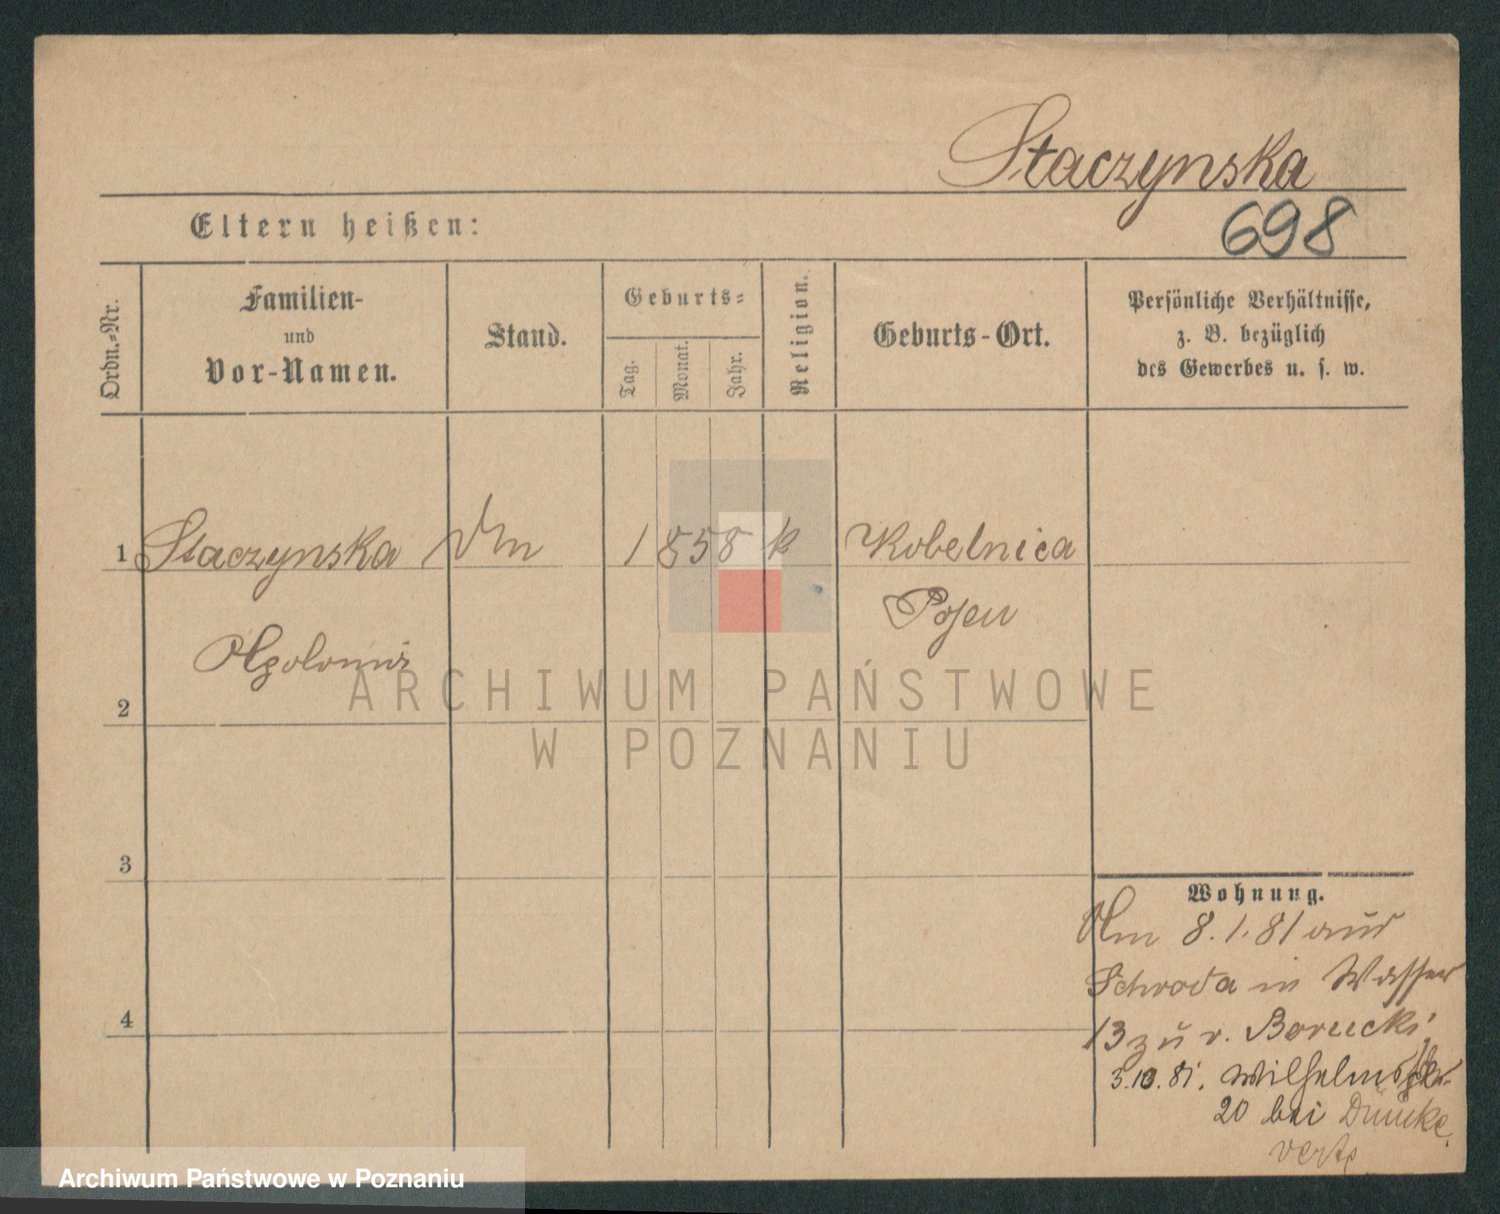 Staczynska
698
Eltern heißen:
Ordn.-Nr.
Familien-
und
Vor-Namen.
Stand.
Geburts-
Tag.
Monat.
Jahr.
Religion.
Geburts-Ort.
Persönliche Verhältnisse,
z. B. bezüglich
des Gewerbes u. s. w.
1 Staczynska 1858 k Kobelnica
Posen
Apolonia
2
ARCHIWUM PAŃSTWOWE
W POZNANIU
3
4
Wohnung.
8.1.81 aus
Schroda in Wasser
13 zu v.
3.10.81. Wilhelmsstr.
20 bei
verte
Archiwum Państwowe w Poznaniu